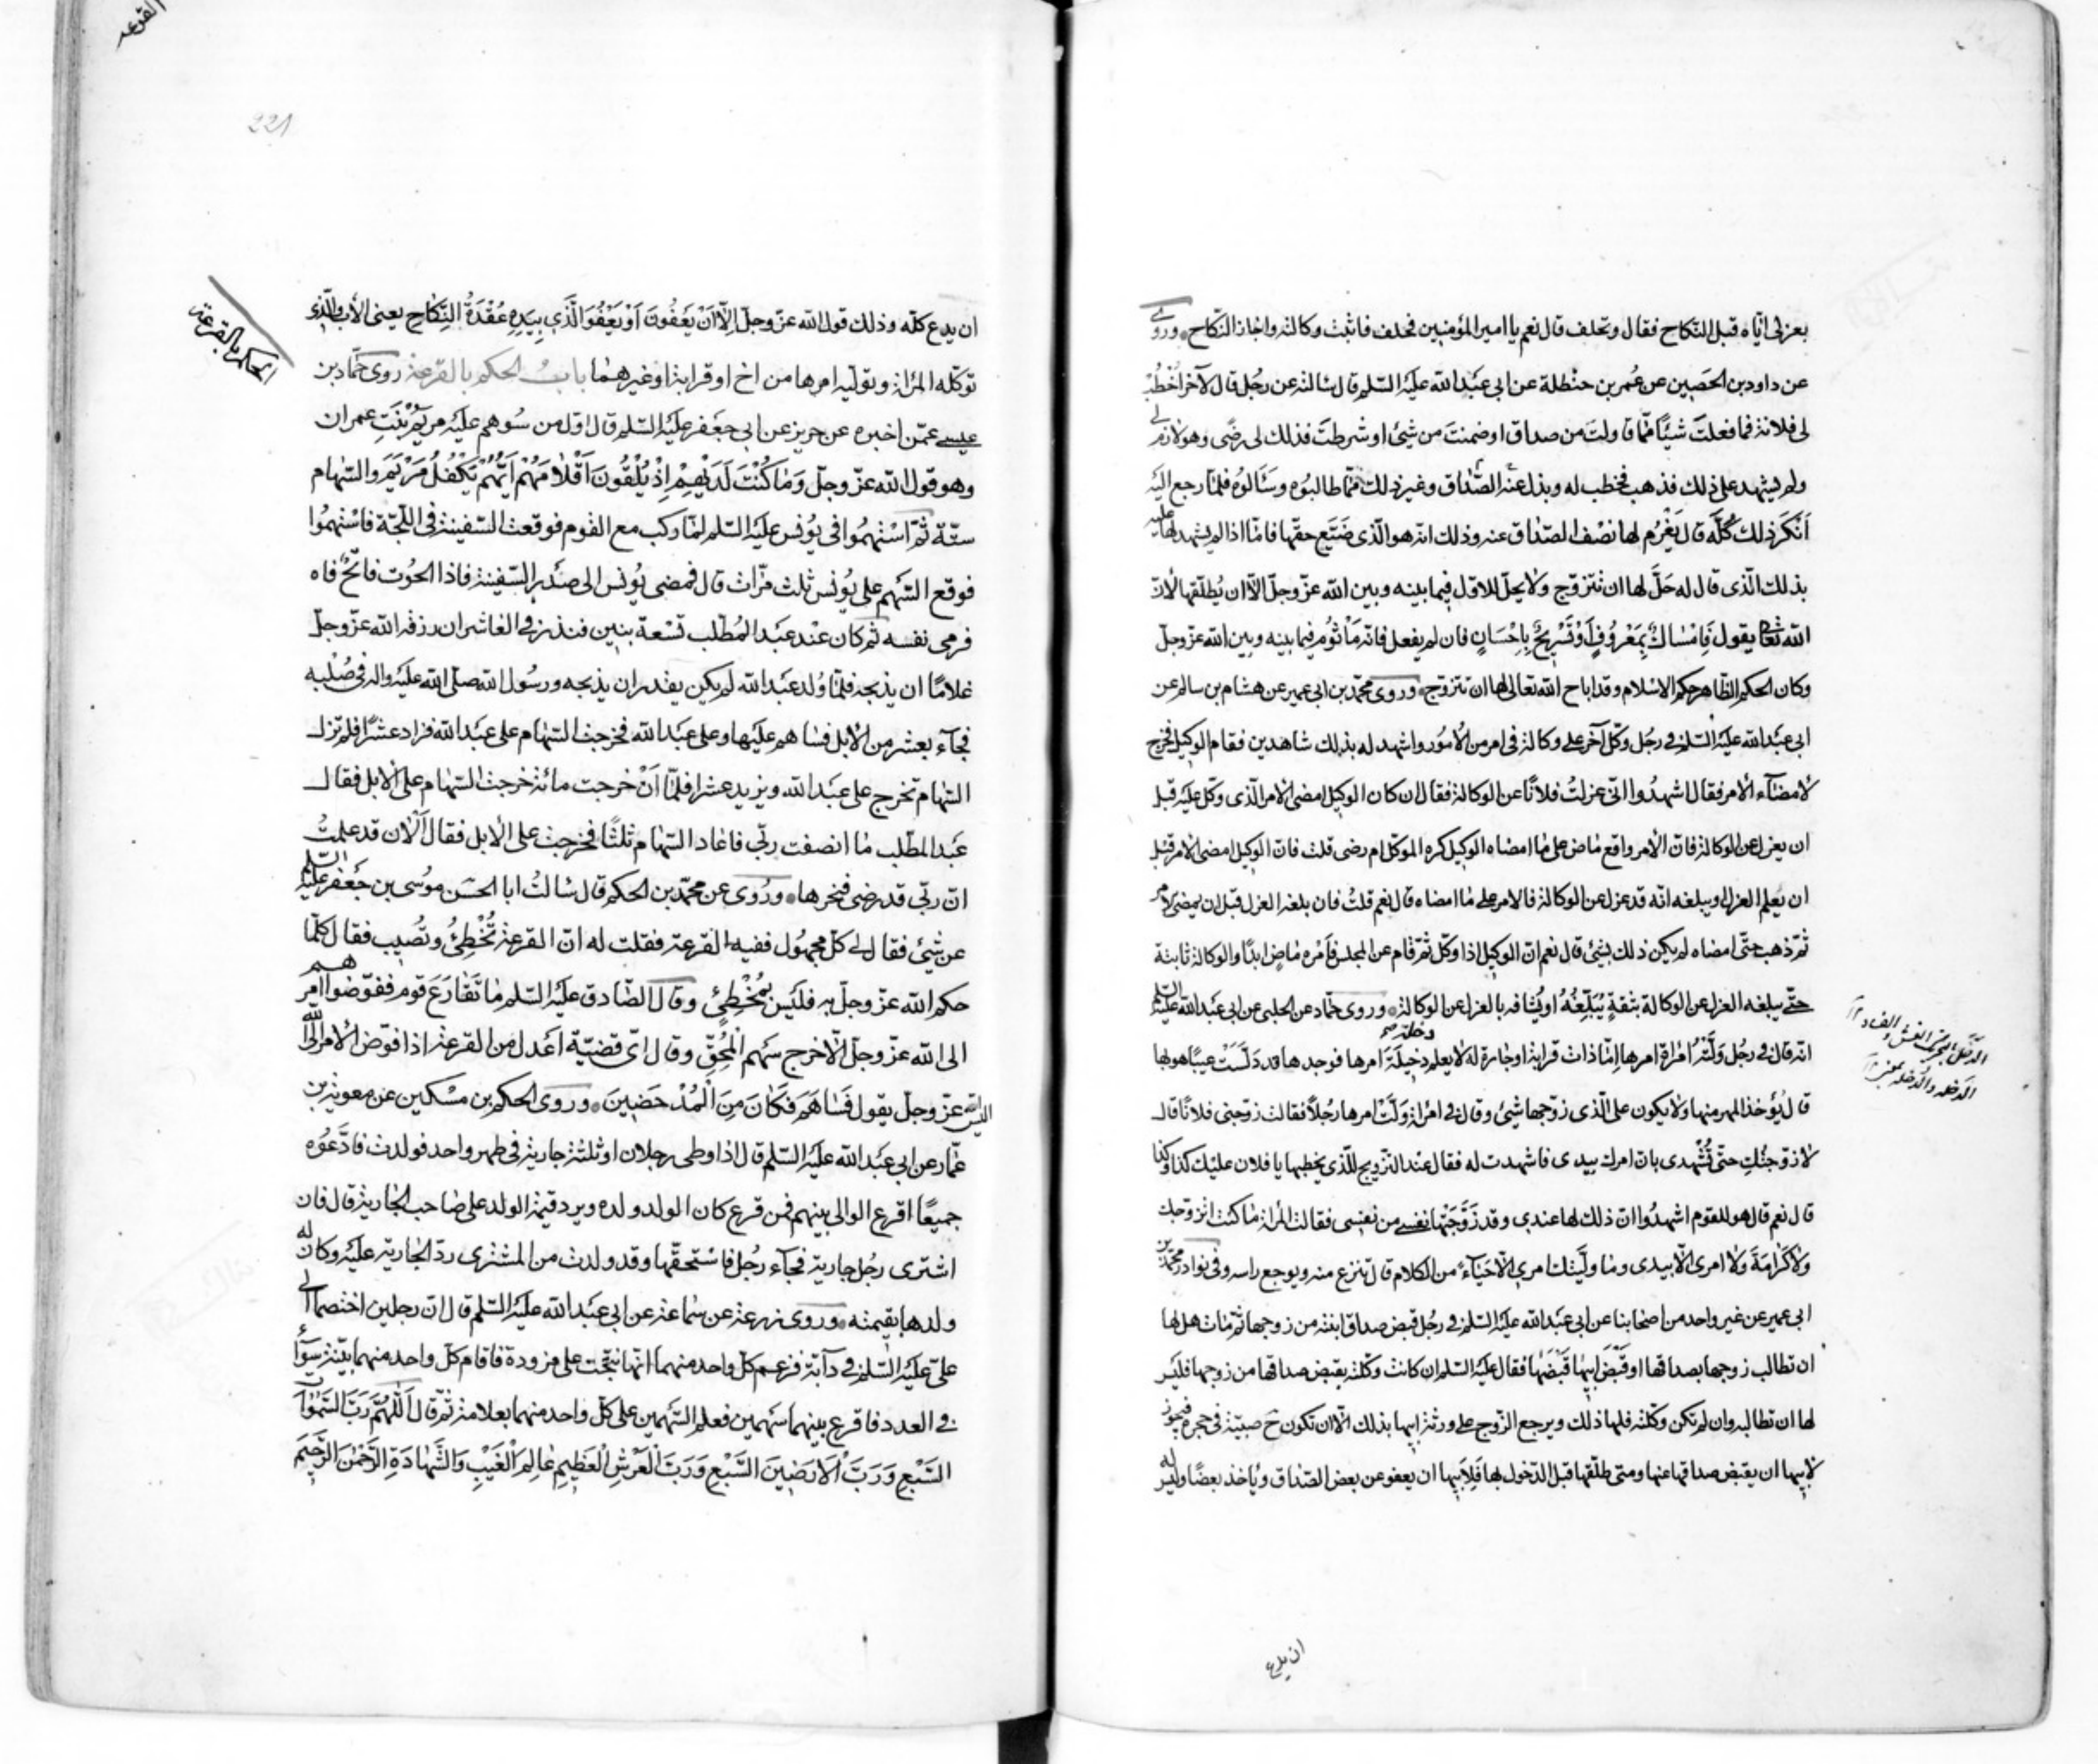 بعزلى ايّاه قبل النكاح فقال وتحلف قال نعم يا امير المؤمنين فحلف فاثبت وكالته واجاز النكاح وروى
عن داود بن الحصين عن عُمر بن حنظلة عن ابى عبد الله عليه السّلم قال سالته عن رجُل قال لآخر اُخْطُبْ
لى فلانة فما فعلتَ شيئًا ممّا قاولتَ من صداق او ضمنتَ من شئ او شرطتَ فذلك لى رضًى وهو لازم لى
ولم يشهد على ذلك فذهب فخطب له وبذل عنه الصّداق وغير ذلك ممّا طالبوُه وسَألوُه فلمّا رجع اليه
اَنكَرَ ذلك كُلَّه قال يَغْرُم لها نصْف الصّداق عنه وذلك انه هو الّذى ضَيّع حقّها فامّا اذا لم يشهد لها عليه
بذلك الّذى قال له حَلَّ لها ان تتزوّج ولا يحلّ للاوّل فيما بينه وبين الله عزّ وجلّ الّا ان يُطلّقها لأنّ
الله تعالى يقول فَاِمْسَاكٌ بِمَعْرُوُفٍ اَوْ تَسْرِيحٌ بِاِحْسَانٍ فان لم يفعل فانه مَأْثوُم فيما بينه وبين الله عزّ وجلّ
وكان الحكم الظّاهر حكم الاسْلام وقد اباح الله تعالى لها ان تتزوّج وروى محمّد بن ابى عمير عن هشام بن سالم عن
ابى عبد الله عليه السّلم فى رجُل وكّل آخر على وكالة فى امر من الأمُور واشهد له بذلك شاهدين فقام الوكيل فخرج
لأمضآء الأمر فقال اشهدُوا انّى عزلتُ فلانًا عن الوكالة فقال ان كان الوكيل امضى الامر الّذى وكّل عليه قبل
ان يعزل عن الوكالة فانّ الأمر واقع ماض على ما امضاه الوكيل كره الموكّل ام رضى قلت فانّ الوكيل امضى الامر قبل
ان يعلم العزل او يبلغه انّه قد عزل عن الوكالة فالامر على ما امضاه قال نعم قلتُ فان بلغه العزل قبل ان يمضى الامر
ثمّ ذهب حتّى امضاه لم يكن ذلك بشئ قال نعم انّ الوكيل اذا وكّل ثمّ قام عن المجلس فاَمْره ماضٍ ابدًا والوكالة ثابتة
حتّى يبلغه العزل عن الوكالة بثقةٍ يُبَلّغُهُ او يُشافه بالعزل عن الوكالة وروى حمّاد عن الحلبى عن ابى عبد الله عليه السّلم
دخلة
انّه قال فى رجُل وَلَّتْهُ امْرأة امرها امّا ذات قرابة او جارة له لا يعلم دخيلَةَ امرها فوجدها قد دَلّسَتْ عيبًا هو بها
قال يُؤخذ المهر منها ولا يكون على الّذى زوّجها شئ وقال فى امرأة وَلّتْ امرها رجُلاً فقالت زوّجنى فلانًا قال
لا زوّجتُكِ حتّى تُشْهدى بانّ امرك بيدى فاشهدت له فقال عند التزويج للّذى يخطبها يا فلان عليك كذا وكذا
قال نعم قال هو للقوم اشهدُوا انّ ذلك لها عندى وقد زَوّجتها نفسى من نفسى فقالت المرأة ما كنت اتزوّجك
ولا كَرامَةَ ولا امرى الّا بيدى وما ولّيتك امرى الّا حَيَاءً من الكلام قال تنزع منه ويوجع راسه وفى نوادر محمّد بن
ابى عمير عن غير واحد من اصحابنا عن ابى عبد الله عليه السّلم فى رجُل قبض صداق ابنته من زوجها ثمّ مات هل لها
ان تطالب زوجها بصداقها او قَبْضَ ابيها قَبْضها فقال عليه السلم ان كانت وكّلته بقبض صداقها من زوجها فليس
لها ان تطالبه وان لم تكن وكّلته فلها ذلك ويرجع الزّوج على ورثة ابيها بذلك الّا ان تكون ح صبيّة فى حجره فيجوز
لابيها ان يقبض صداقها عنها ومتى طلّقها قبل الدّخول بها فَلاَبيها ان يعفو عن بعض الصّداق ويُأخذ بعضًا وليس له
ان يدع
221
الحكم بالقرعة
ان يدع كلّه وذلك قول الله عزّ وجلّ اِلّا اَنْ يَعْفُونَ اَوْ يَعْفُوَ الَّذى بِيَدِهِ عُقْدَةُ النِّكَاحِ يعنى الأب والّذى
توكّله المرأة وتولّيه امرها من اخ او قرابة او غيرهما بابُ الحكم بالقرعة روى حمّاد بن
عيسى عمّن اخبره عن حريز عن ابى جعفر عليه السّلم قال اوّل من سُوهم عليه مريم بنتِ عمران
وهو قول الله عزّ وجلّ وَمَا كُنْتَ لَدَيْهِمْ اِذْ يُلْقُونَ اَقْلامَهُمْ اَيُّهُمْ يَكْفُلُ مَرْيَمَ والسّهام
ستّة ثمّ اسْتهمُوا فى يُونس عليه السّلم لمّا ركب مع القوم فوقعت السّفينة فى اللّجّة فاسْتهمُوا
فوقع السّهم على يُونس ثلث مرّات قال فمضى يُونس الى صدر السّفينة فاذا الحُوت فاتحٌ فاه
فرمى نفسه ثم كان عند عبد المُطّلب تسْعة بنين فنذر فى العاشر ان رزقه الله عزّ وجلّ
غلامًا ان يذبحه فلمّا وُلد عبد الله لم يكن يقدر ان يذبحه ورسُول الله صلّى الله عليه واله فى صُلْبه
فجآء بعشر من الأبل فساهم عليها وعلى عبد الله فخرجت السّهام على عبد الله فزاد عشرًا فلم تزل
السّهام تخرج على عبد الله ويزيد عشرا فلمّا اَنْ خرجت مائة خرجت السّهام على الابل فقال
عبد المطّلب ما انصفت ربّى فاعاد السّهام ثلثًا فخرجت على الأبل فقال اَلآن قد علمتُ
انّ ربّى قد رضى فنحرها وروُى عن محمّد بن الحكم قال سالتُ ابا الحسن موُسى بن جعفر عليه السّلم
عن شئ فقال لى كلّ مجهُول ففيه القرعة فقلت له انّ القرعة تُخْطِئُ وتُصيب فقال كلّما
حكم الله عزّ وجلّ به فليس بمُخْطِئٍ وقال الصّادق عليه السّلم ما تَقَارَعَ قوم ففوّضوا امرهم
الى الله عزّ وجلّ الّا خرج سَهم الْمُحِقِّ وقال اىّ قضيّة اعْدل من القرعة اذا فوّض الأمر الى الله
اليس الله عزّ وجلّ يقول فَسَاهَمَ فَكَانَ مِنَ الْمُدْحَضينَ وروى الحكم بن مسْكين عن معوية بن
عمّار عن ابى عبد الله عليه السّلم قال اذا وطى رجلان او ثلثة جارية فى طهر واحد فولدت فادّعَوُه
جميعًا اقرع الوالى بينهم فمن قرع كان الولد ولده ويرد قيمة الولد على صاحب الجارية قال فان
اشترى رجُل جارية فجآء رجُل فاسْتحقّها وقد ولدت من المشترى ردّ الجارية عليه وكان له
ولدها بقيمته وروى زرعة عن سماعة عن ابى عبد الله عليه السّلم قال انّ رجلين اختصما الى
علىّ عليه السّلم فى دآبّة فزعم كلّ واحد منهما انّها نتجت على مزودة فاقام كلّ واحد منهما بيّنة سوآء
فى العدد فاقرع بينهما سَهمين فعلم السّهمين على كلّ واحد منهما بعلامة ثمّ قال اَللّهُمَّ رَبَّ السَّمٰوٰاتِ
السَّبْعِ وَرَبَّ الْاَرَضينَ السَّبْعِ وَرَبَّ الْعَرْشِ الْعَظيمِ عٰالِمَ الْغَيْبِ وَالشَّهٰادَةِ الرَّحْمٰنَ الرَّحيمَ